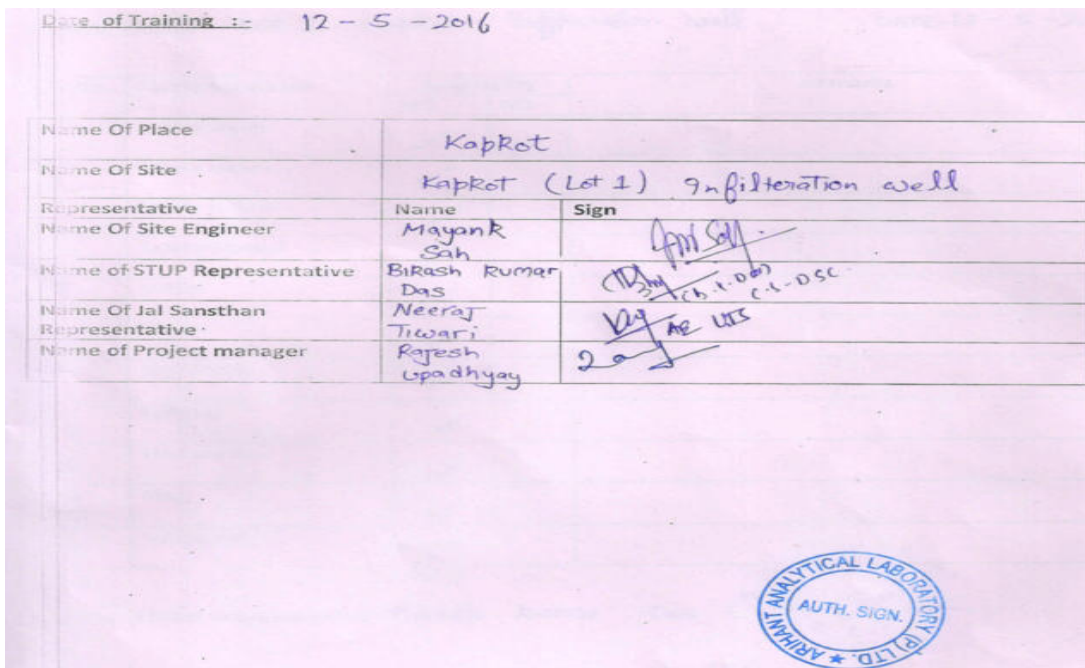 Date of Training :- 12 - 5 - 2016
Name Of Place Kapkot
Name Of Site Kapkot (Lot 1) Infilteration well
Representative Name Sign
Name Of Site Engineer Mayank Sah
Name of STUP Representative Bikash Kumar Das
(b.k.Das)
DSC
Name Of Jal Sansthan Representative Neeraj Tiwari
AE UJS
Name of Project manager Rajesh Upadhyay
ARIHANT ANALYTICAL LABORATORY (P) LTD.
AUTH. SIGN.